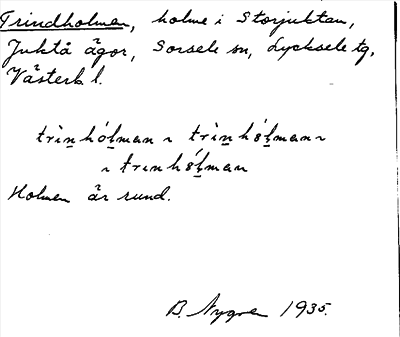 Trindholmen, holme i Storjuktan,
Juktå ägor, Sorsele sn, Lycksele tg,
Västerb l.
trìn̲hól̲man ~ trìn̲hól̲man ~
~ trɩnhól̲man
Holmen är rund.
B. Nygren 1935.